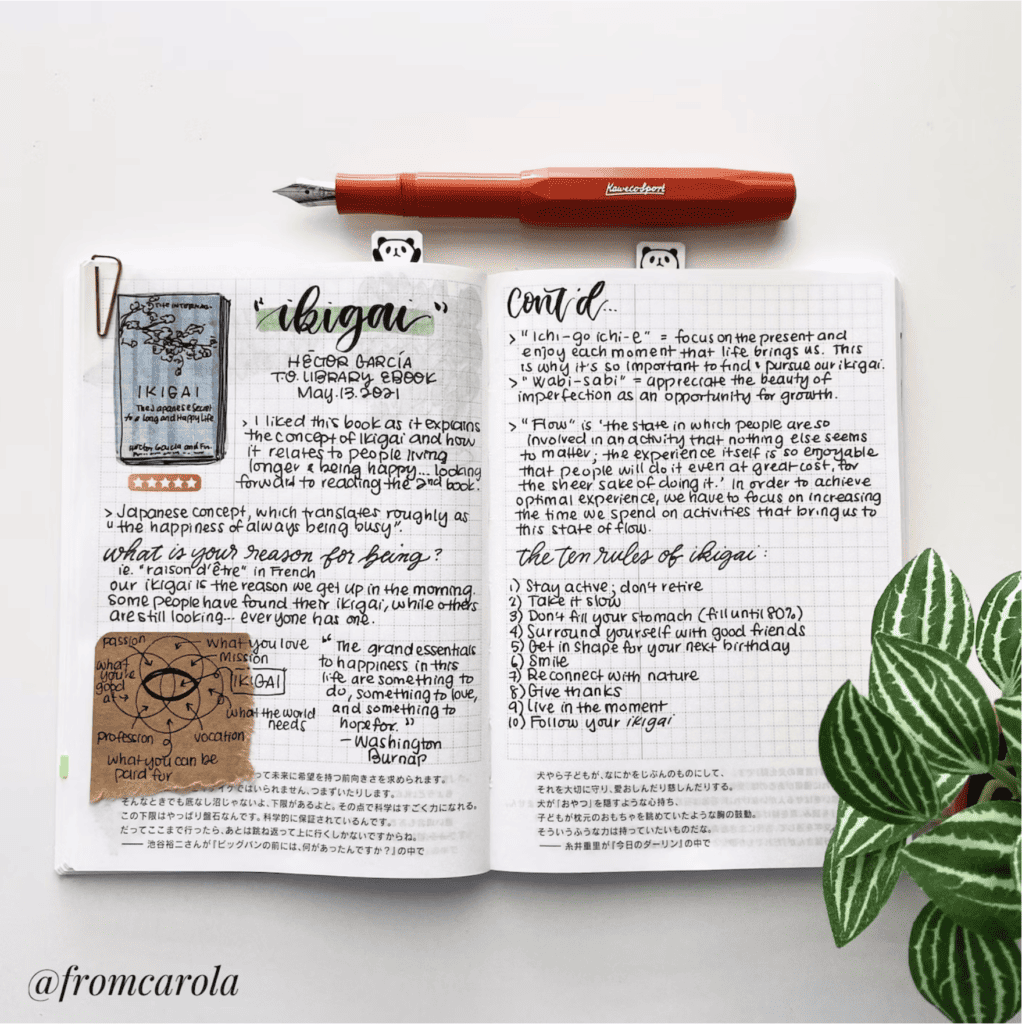 KawecoSport
THE INTERNA-
IKIGAI
The Japanese Secret
to a Long and Happy Life
Héctor García and Fr.
"ikigai"
HÉCTOR GARCÍA
TO LIBRARY EBOOK
May.13.2021
> I liked this book as it explains
the concept of Ikigai and how
it relates to people living
longer & being happy... looking
forward to reading the 2nd book.
> Japanese concept, which translates roughly as
"the happiness of always being busy".
what is your reason for being?
ie. "raison d'être" in French
our ikigai is the reason we get up in the morning.
Some people have found their ikigai, while others
are still looking... everyone has one.
passion
what you love
mission
what
you're
good
at
IKIGAI
what the world
needs
profession
vocation
what you can be
paid for
"The grand essentials
to happiness in this
life are something to
do, something to love,
and something to
hope for."
- Washington
Burnap
って未来に希望を持つ前向きさを求められます。
イケではいられません、つまずいたりします。
そんなときでも底なし沼じゃないよ、下限があるよと。その点で科学はすごく力になれる。
この下限はやっぱり盤石なんです。科学的に保証されているんです。
だってここまで行ったら、あとは跳ね返って上に行くしかないですからね。
—— 池谷裕二さんが『ビッグバンの前には、何があったんですか？』の中で
Cont'd...
> "Ichi-go ichi-e" = focus on the present and
enjoy each moment that life brings us. This
is why it's so important to find & pursue our ikigai.
> "Wabi-sabi" = appreciate the beauty of
imperfection as an opportunity for growth.
> "Flow" is 'the state in which people are so
involved in an activity that nothing else seems
to matter; the experience itself is so enjoyable
that people will do it even at great cost, for
the sheer sake of doing it.' In order to achieve
optimal experience, we have to focus on increasing
the time we spend on activities that bring us to
this state of flow.
the ten rules of ikigai:
1) Stay active; don't retire
2) Take it slow
3) Don't fill your stomach (fill until 80%)
4) Surround yourself with good friends
5) Get in shape for your next birthday
6) Smile
7) Reconnect with nature
8) Give thanks
9) Live in the moment
10) Follow your ikigai
犬やら子どもが、なにかをじぶんのものにして、
それを大切に守り、愛おしんだり慈しんだりする。
犬が「おやつ」を隠すような心持ち、
子どもが枕元のおもちゃを眺めていたような胸の鼓動。
そういうふうな力は持っていたいものだな。
—— 糸井重里が『今日のダーリン』の中で
@fromcarola